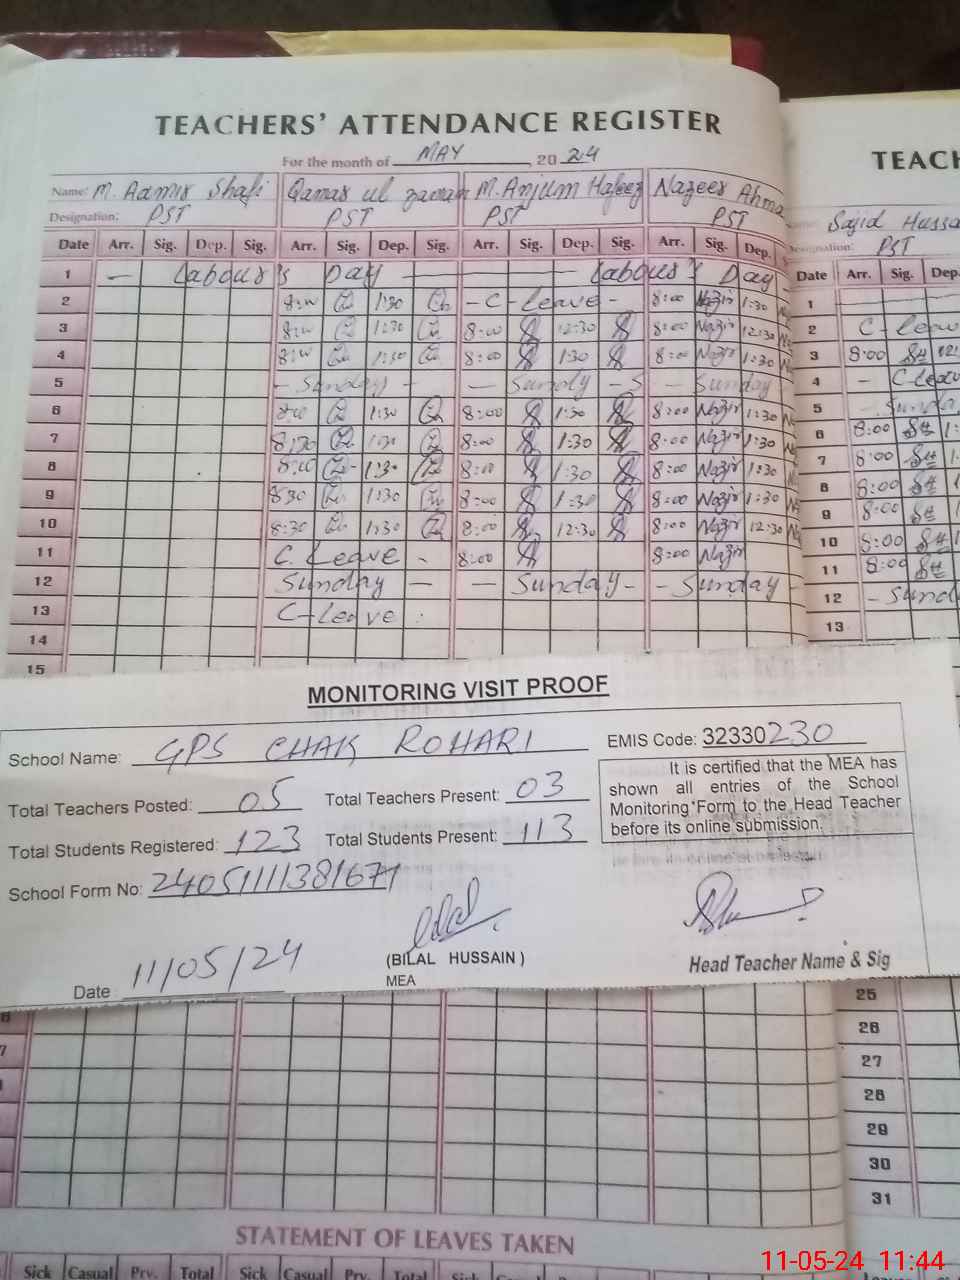 TEACHERS' ATTENDANCE REGISTER
For the month of MAY, 2024
TEACH
Name: M. Aamir Shafi Qamar ul zaman M. Anjum Hafeez Nazeer Ahma
Designation: PST PST PST PST
Sajid Hussa
Designation: PST
Date Arr. Sig. Dep. Sig. Arr. Sig. Dep. Sig. Arr. Sig. Dep. Sig. Arr. Sig. Dep. Date Arr. Sig. Dep.
1 — Labour's Day — Labour's Day 1
2 8:00 1:30 - C-Leave - 8:00 Nazir 1:30 2 C-leav
3 8:00 12:30 8:00 12:30 8:00 Nazir 12:30 3 8:00 12:
4 8:00 1:30 8:00 1:30 8:00 Nazir 1:30 4 - C-leav
5 - Sunday - — Sunday - S - Sunday 5 - Sunda
6 8:00 1:30 8:00 1:30 8:00 Nazir 1:30 6 8:00 1:
7 8:30 1:30 8:00 1:30 8:00 Nazir 1:30 7 8:00 1
8 8:00 1:30 8:00 1:30 8:00 Nazir 1:30 8 8:00 1
9 8:30 1:30 8:00 1:30 8:00 Nazir 1:30 9 8:00 1
10 8:30 1:30 8:00 12:30 8:00 Nazir 12:30 10 8:00
11 C. Leave - 8:00 8:00 Nazir 11 8:00
12 Sunday — — Sunday - - Sunday - 12 - Sund
13 C-Leave 13
14
15
MONITORING VISIT PROOF
School Name: GPS CHAK ROHARI EMIS Code: 32330230
Total Teachers Posted: 05 Total Teachers Present: 03
Total Students Registered: 123 Total Students Present: 113
School Form No: 24051111381671
It is certified that the MEA has
shown all entries of the School
Monitoring Form to the Head Teacher
before its online submission.
(BILAL HUSSAIN)
MEA
Head Teacher Name & Sig
Date 11/05/24
25
26
27
28
29
30
31
STATEMENT OF LEAVES TAKEN
Sick Casual Prv. Total Sick Casual Prv. Total Sick Casual Prv. Total Sick
11-05-24 11:44